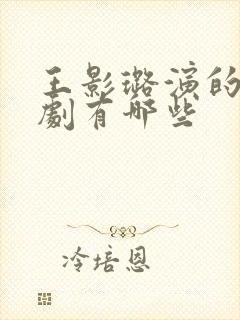 王影璐演的
劇有哪些
冷培恩